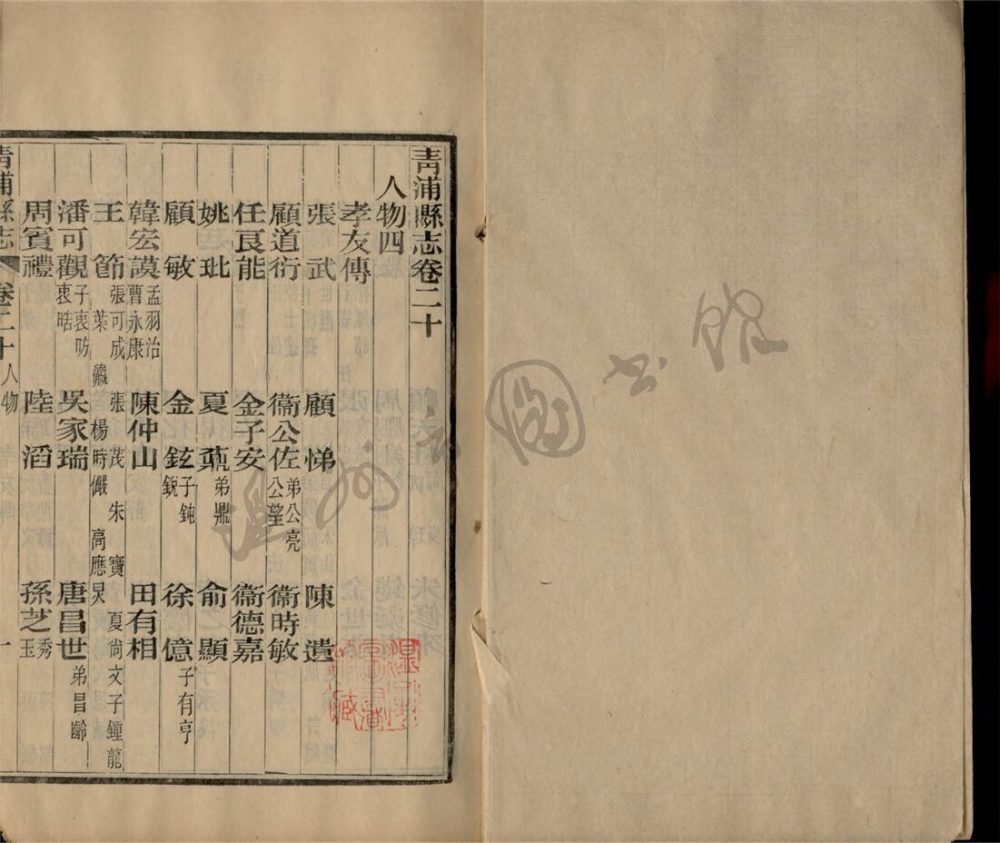 青浦縣志卷二十
人物四
孝友傳
張武　顧悌　陳遺
顧道衍　衞公佐弟公亮公望　衞時敏
任良能　金子安　衞德嘉
姚玭　夏鼐弟鼎　俞顯
顧敏　金鉉子鈍銳　徐億子有亨
韓宏謨孟羽治曹永康　陳仲山　田有相
王節張可成　張茂　朱寶　夏尚文子鍾龍　葉　楊時儼　高應炅
潘可觀子衷昉衷晤　吳家瑞　唐昌世弟昌齡
周賓禮　陸滔　孫芝秀玉
青浦縣志　卷二十人物　一
溫州市圖書館